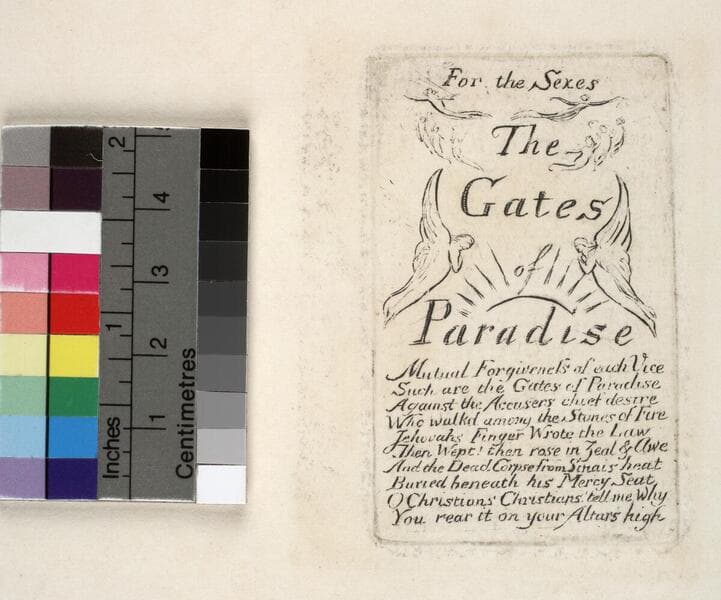 For the Sexes
The
Gates
of
Paradise
Mutual Forgiveness of each Vice
Such are the Gates of Paradise
Against the Accusers chief desire
Who walkd among the Stones of Fire
Jehovahs Finger Wrote the Law
Then Wept! then rose in Zeal & Awe
And the Dead Corpse from Sinais heat
Buried beneath his Mercy Seat
O Christians Christians! tell me Why
You rear it on your Altars high
Inches
1
2
Centimetres
1
2
3
4